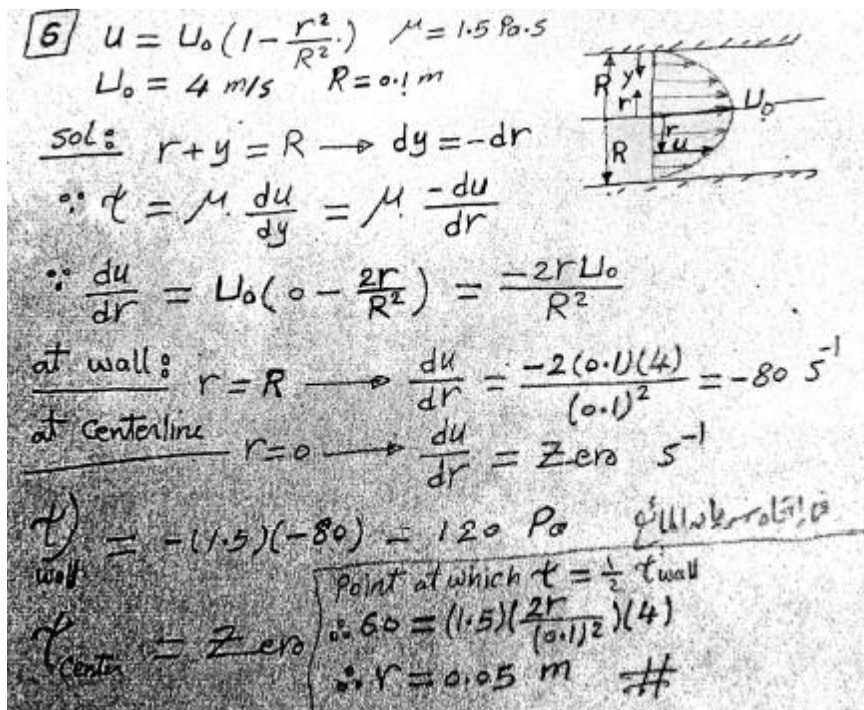 6 u = U₀(1 - r²/R².) μ = 1.5 Pa.s
U₀ = 4 m/s R = 0.1 m
R y r U₀
R r u
sol: r + y = R → dy = -dr
∵ τ = μ. du/dy = μ. -du/dr
∵ du/dr = U₀(0 - 2r/R²) = -2rU₀/R²
at wall: r = R → du/dr = -2(0.1)(4)/(0.1)² = -80 s⁻¹
at centerline r = 0 → du/dr = Zero s⁻¹
τ)wall = -(1.5)(-80) = 120 Pa
τcenter = Zero
Point at which τ = ½ τwall
∴ 60 = (1.5)(2r/(0.1)²)(4)
∴ r = 0.05 m #